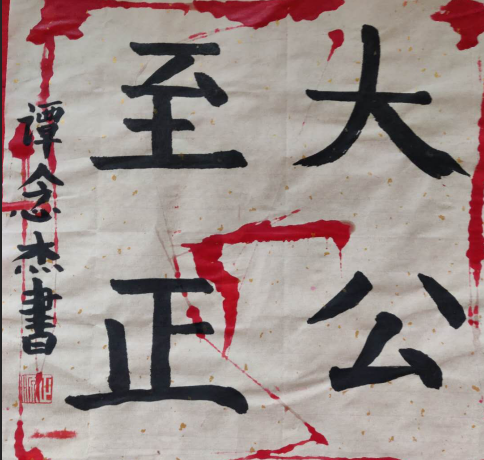 大公
至正
谭念杰書